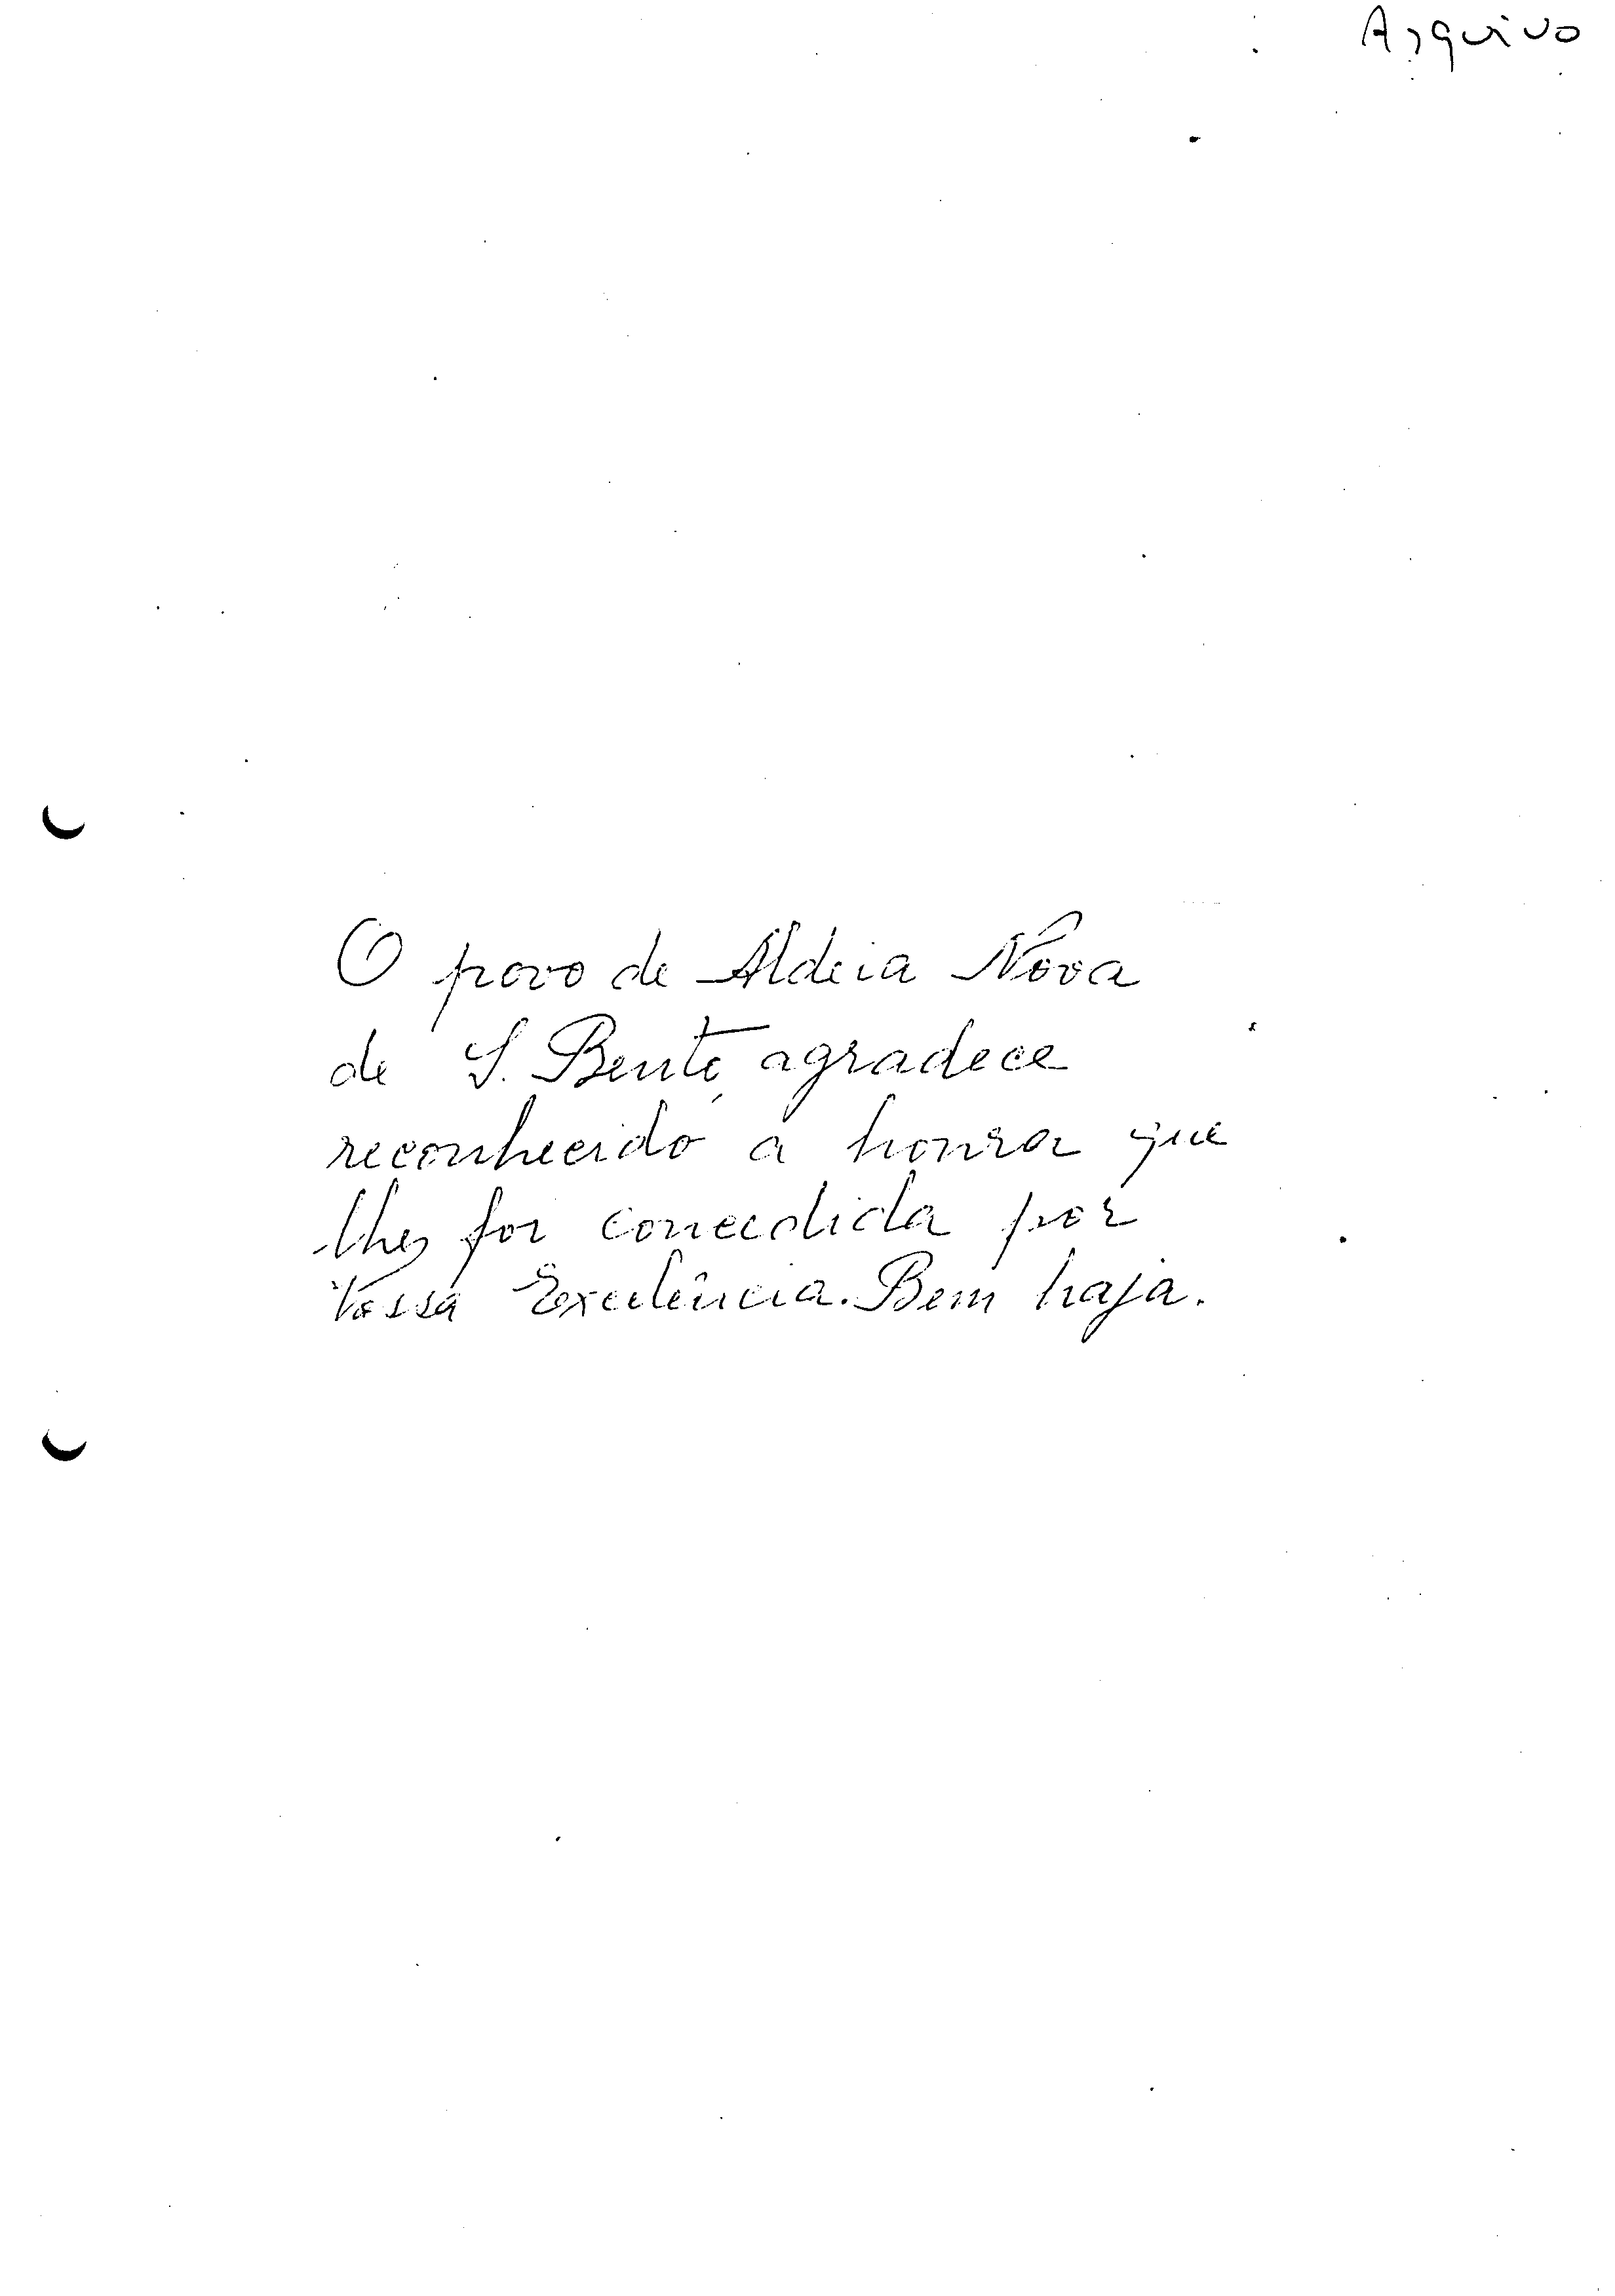 Arquivo
O povo de Aldeia Nova
de S. Bento, agradece
reconhecido a honra que
lhes foi concedida por
Vossa Excelência. Bem haja.